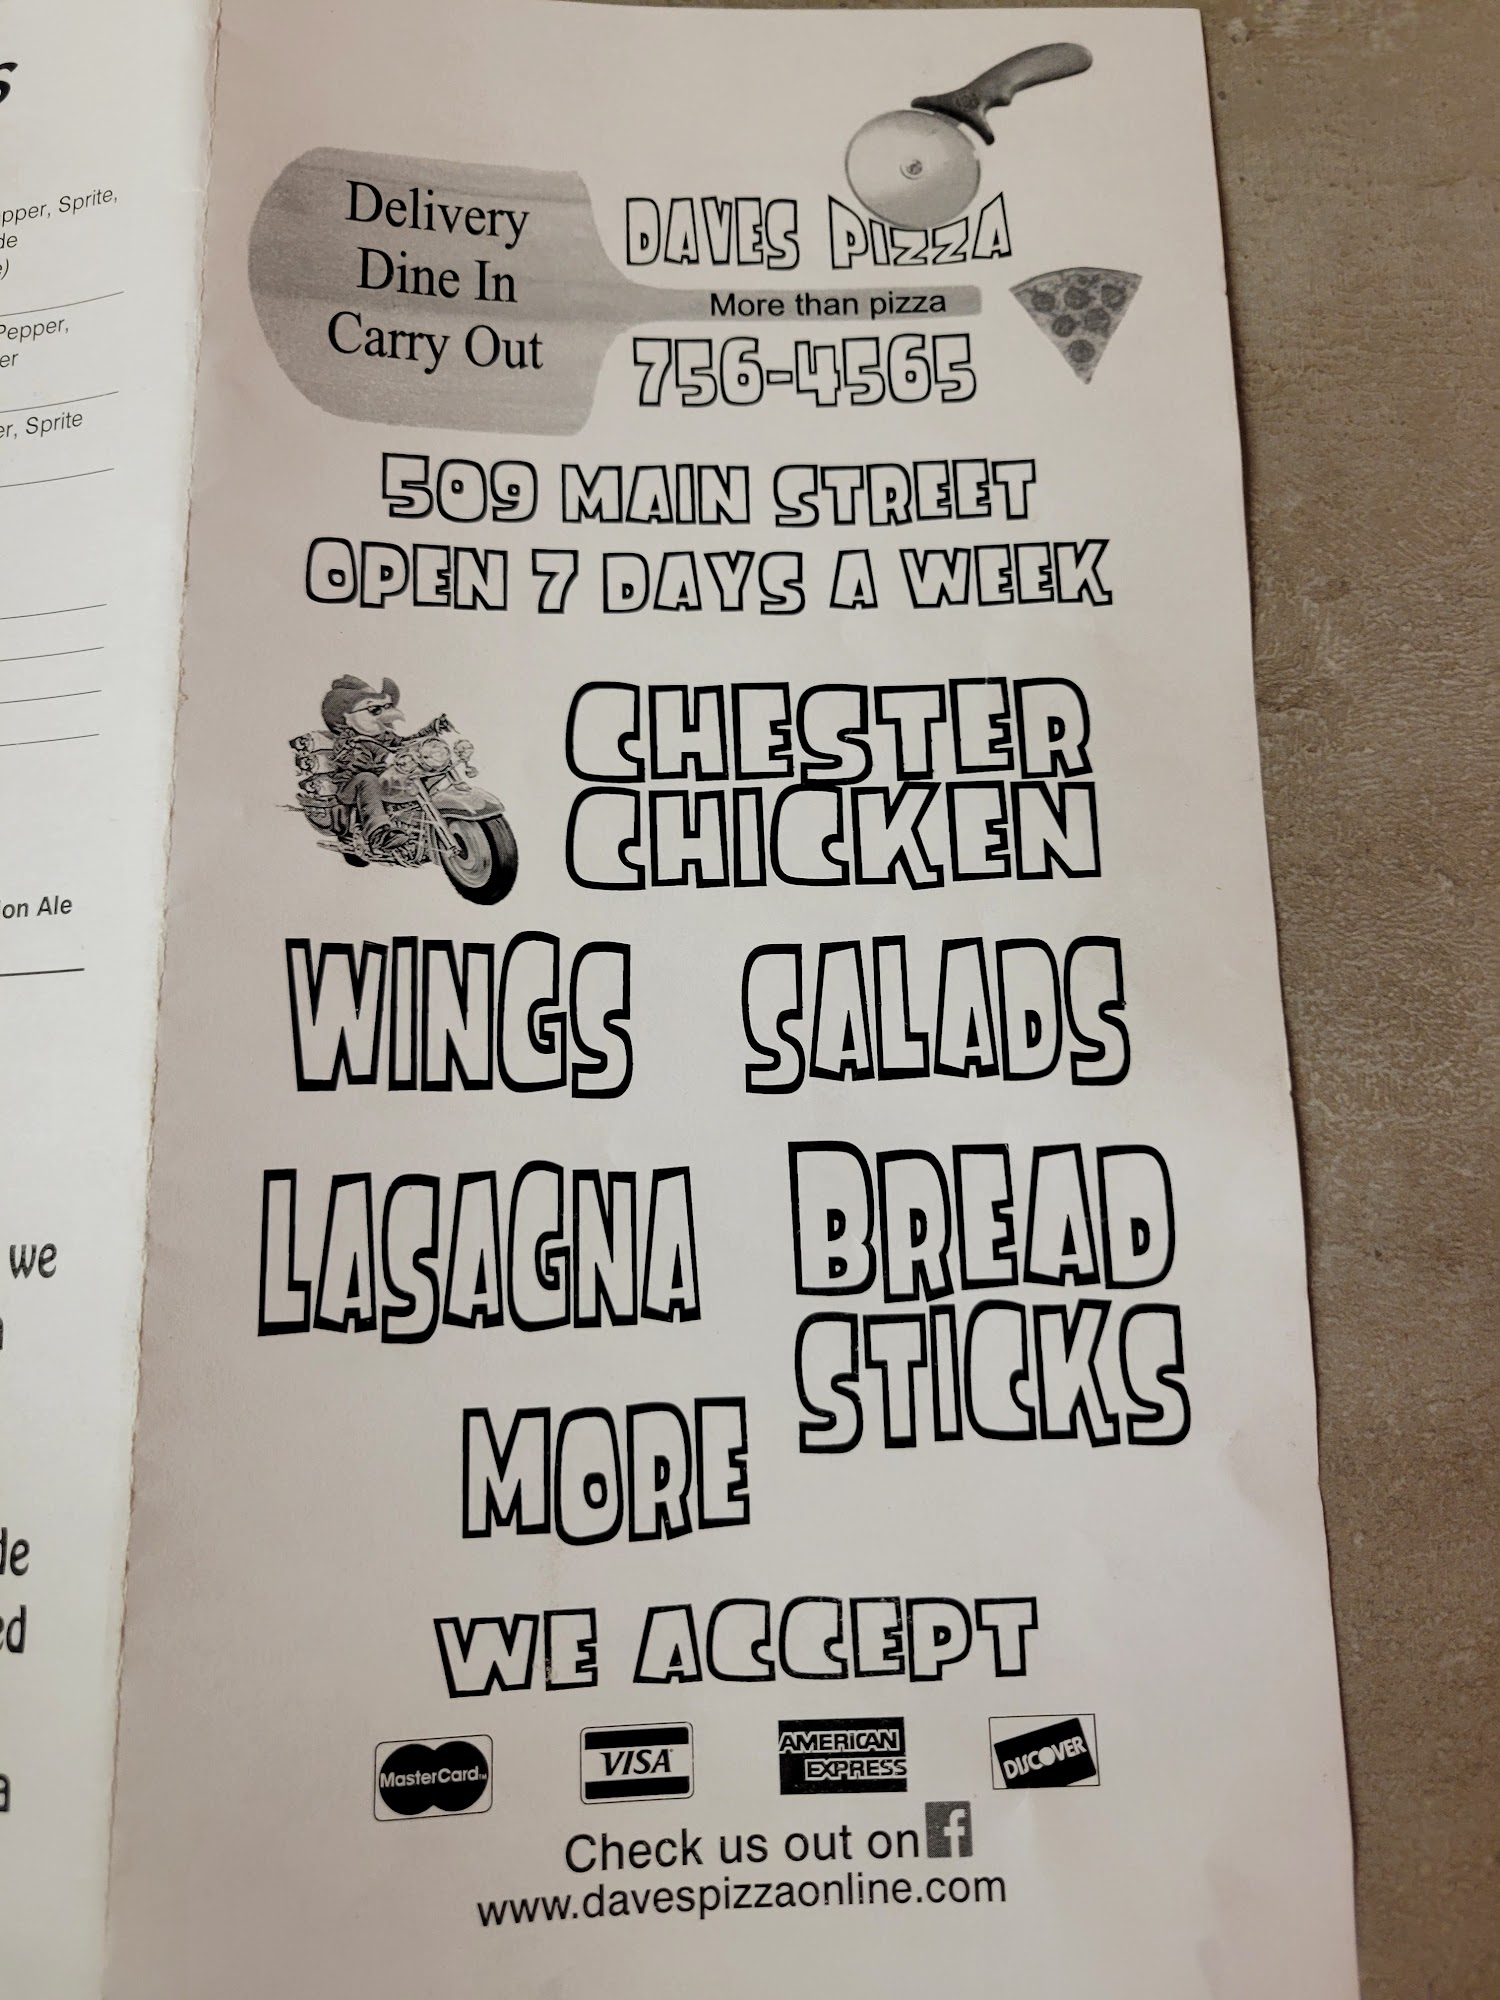 pper, Sprite,
Pepper,
er, Sprite
ion Ale
we
Delivery
Dine In
Carry Out
DAVES PIZZA
More than pizza
756-4565
509 MAIN STREET
OPEN 7 DAYS A WEEK
CHESTER
CHICKEN
WINGS SALADS
LASAGNA
BREAD
STICKS
MORE
WE ACCEPT
MasterCard
VISA
AMERICAN
EXPRESS
DISCOVER
Check us out on f
www.davespizzaonline.com